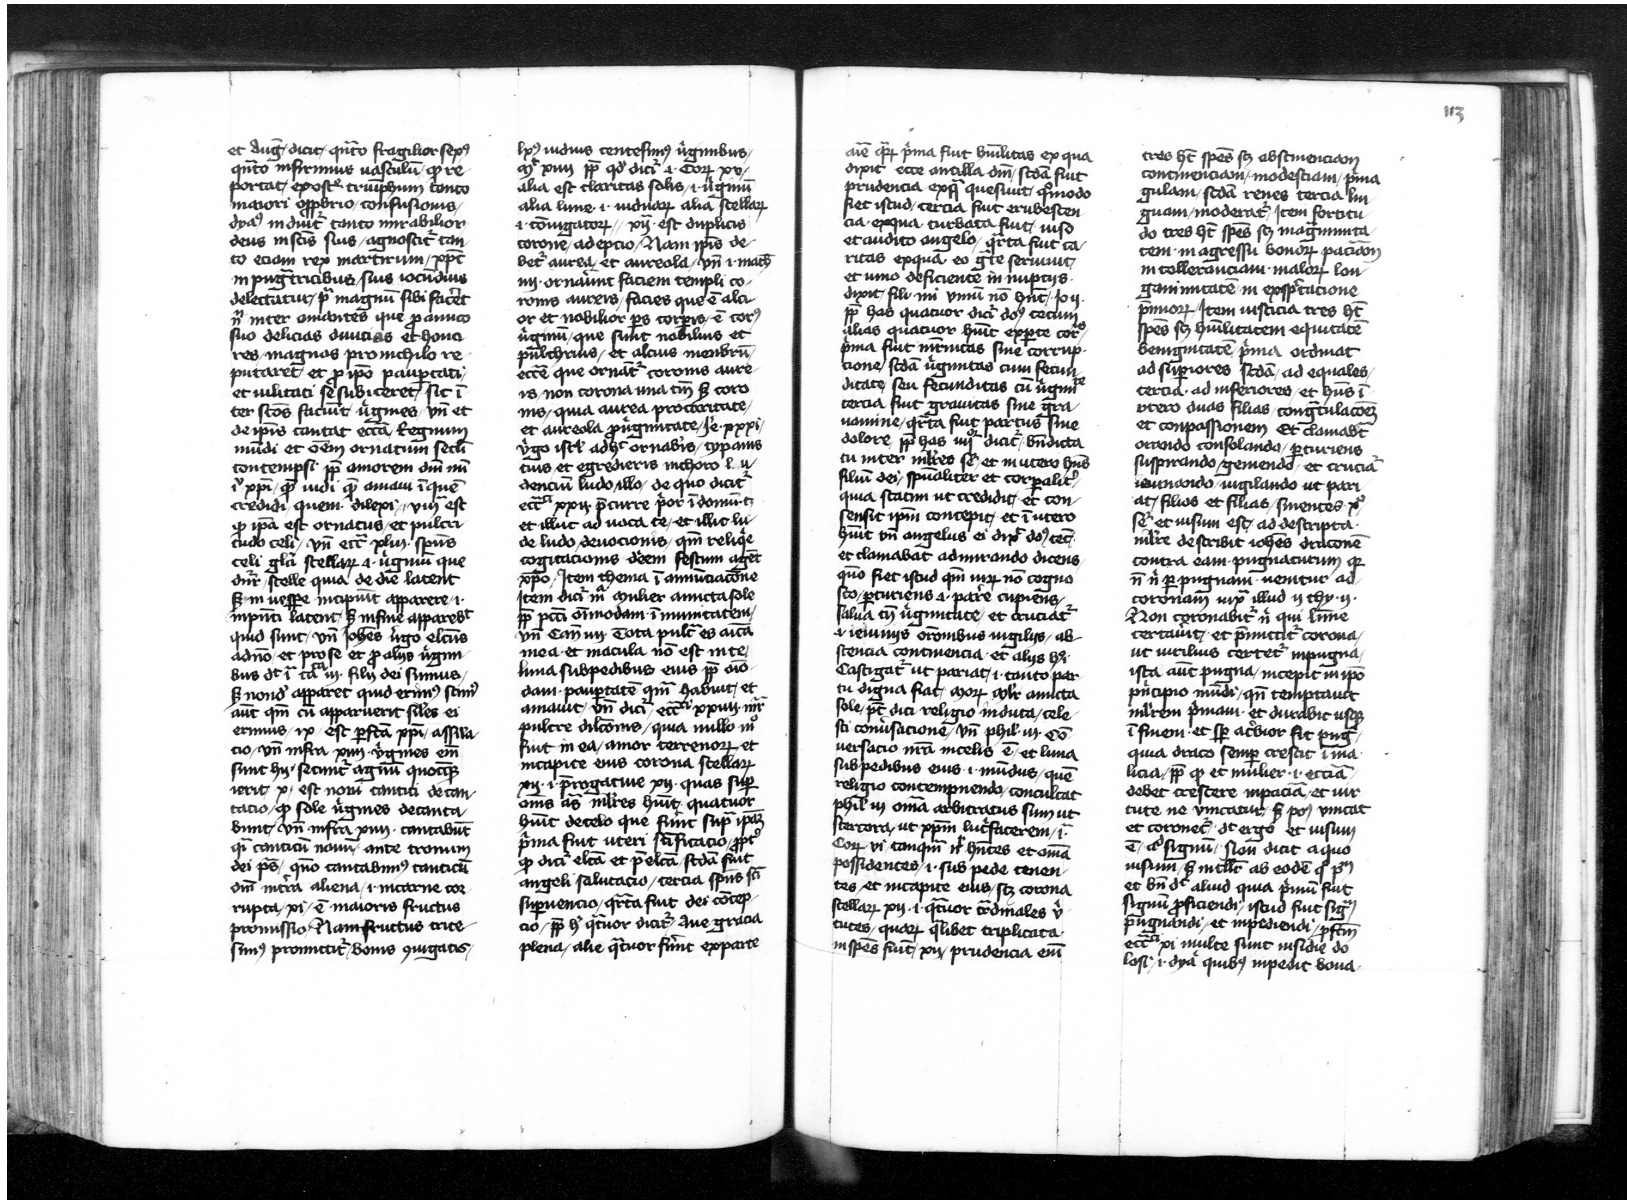 113
et Aug̃ dicit qn̄to fragilior sexꝰ
qn̄to infirmius vasculū ꝙ re
portat ex hostẽ triūphum tanto
maiori opprobrio confusionis
dyaꝰ induit᷑ tanto mirabilior
deus in scīs suis agnoscit᷑ tan
to eciam rex martirum xp̄c
in pugnatricibus suis iocūdius
delectatur magnū sibi fac̄et
n̄ inter amantes que p̱ amico
suo delicias diuicias et hono
res magnos pro nichilo re
putaret et p̱ ip̄o paup̱tati
et vilitati se subiceret sic ī
ter sc̄os faciūt v̓gines vn̄ et
de ip̄is cantat ecc̄a Regnum
mūdi et oēm ornatum sec̄li
contempsi ꝓp̄ amorem dn̄i mī
ih̄u xp̄i quē vidi quē amaui ī quē
credidi quem dilexi viiiꝰ est
ꝙ ip̄a est ornatus et pulcri
tudo celi vn̄ ecc̄i xliii sp̄es
celi gl̄ia stellaꝝ .i. v̓ginū que
dn̄r stelle quia de die latent
ꝫ in vesp̱e incipiūt apparere .i.
in p̄nti latent ꝫ in fine apparebt̄
quid sunt vn̄ ioh̄es v̓go elcūs
a dn̄o et pro se et p̱ alijs v̓gini
bus dt̄ ī cā iii filij dei sumus
ꝫ nond̄ apparet quid erimꝰ scimꝰ
aūt qm̄ cū apparuerit sil̄es ei
erimus ix est p̱fc̄a xp̄i assilia
cio vn̄ infra xiiii v̓gines eīn
sunt hij secunt᷑ agnū quocūqꝫ
ierit x est noui cantici decan
tacio ꝙ sole v̓gines decanta
bunt vn̄ infra xiiii cantabūt
qi canticū nouū ante tronum
dei p̄s quō cantabimꝰ canticū
dn̄i in tr̄a aliena .i. in carne cor
rupta xi ē maioris fructus
promissio Nam fructus trice
simꝰ promittit᷑ bonis ꝯiugatis
lxꝰ viduis centesimꝰ v̓ginibus
mᵗ xiiii ꝓp̄ qd̓ dic̄ .i. Coꝝ xv
alia est claritas solis .i. v̓ginū
alia lune .i. viduaꝝ alia stellaꝝ
.i. cōiugatoꝝ xijᵃ est duplicis
corone adepcio Nam ip̄is de
bet᷑ aurea et aureola vn̄ .i. mach̄
iiii ornauerūt faciem templi co
ronis aureis facies que ē alci
or et nobilior ps corp̱is ē corꝰ
v̓ginū que sunt nobilius et
pulchrius et alcius membrū
ecc̄e que ornat᷑ coronis aure
is non corona una tm̄ ꝫ coro
nis quia aurea pro caritate
et aureola p̱ v̓ginitate Je xxxi
v̓go isrl̄ adhᶜ ornab̓is tympanis
tuis et egredieris in choro lu
dencium ludo illo de quo dicit᷑
ecc̄i xxxii p̄curre p̓or ī domū t
et illuc aduoca te et illic lu
de ludo deuocionis qm̄ reliq̓e
cogitacionis diem festum agēt
xp̄o Item thema ī annūciacōne
Item dic̄ mᵃ Mulier amicta sole
ꝓp̄ pcc̄i oīmodam īmunitatem
vn̄ Can iiii Tota pulc᷑ es amīca
mea et macula nō est in te
luna sub pedibus eius ꝓp̄ oīo
dam paup̱tatē qm̄ habuit et
amauit vn̄ dic̄ ecc̄i xxiiii int᷑
pulcre dilc̄onis quia nullo mᵒ
fuit in ea amor terrenoꝝ et
in capite eius corona stellaꝝ
xij .i. p̄rogatiue xij quas sup̱
om̄s as̄ mlr̄es hūit quatuor
hūit de celo que fūit sup̱ ip̄aꝫ
p̓ma fuit uteri sc̄ificacio ꝓpt᷑
ꝙ dic̄ elc̄a et p̄elc̄a scd̄a fuit
angeli salutacio tercia sp̄us sc̄i
sup̱uencio qr̄ta fuit dei cōcep
cio ꝓp̄ hꝰ qtuor dicit᷑ Aue gracia
plena alie qtuor fūint ex parte
aīe p̓ma fuit hūilitas ex qua
dixit ecce ancilla dn̄i scd̄a fuit
prudencia ex qua quesiuit quōmodo
fiet istud tercia fuit erubescen
cia ex qua turbata fuit viso
et audito angelo qr̄ta fuit ca
ritas ex qua eo gr̄te seruiuit
et vino deficiente in nuptijs
dixit fili mi vinū nō hn̄t Io ij
ꝓp̄ has quatuor dic̄ dn̄s tecum
alias quatuor hūit ex p̱te corꝑis
p̓ma fuit mr̄nitas sine corrup
cione scd̄a v̓ginitas cum fecun
ditate seu fecunditas cū v̓gīnte
tercia fuit grauitas sine gra
uamine qr̄ta fuit partus sine
dolore ꝓp̄ has iiijᵒʳ dicit᷑ bn̄dicta
tu inter mlr̄es se et in utero hn̄s
filium dei sp̄ualiter et corp̱alit᷑
quia statim ut credidit et con
sensit ip̄m concepit et ī utero
hūit vn̄ angelus ei dix̄ dn̄s tec̄
et clamabat admirando dicens
quō fiet istud qm̄ viꝝ nō cogno
sco p̱turiens .i. pare cupiens
salua tn̄ v̓ginitate et cruciat᷑
.i. ieiunijs orōnibus vigilijs ab
stencia continencia et alijs hꝰi
Castigat᷑ ut pariat .i. tanto par
tu digna fiat moꝝ ml̓r amicta
sole p̄t dici religio induta cele
sti conu̓sacione vn̄ phil iii Cō
versacio nr̄a in celis ē et luna
sub pedibus eius .i. mūdus quē
religio contempnendo conculcat
phil iii om̄ia arbitratus sum ut
stercora ut xp̄m luc̓facerem .i.
Coꝝ vi tanqm̄ n̄l hn̄tes et om̄ia
possidentes .i. sub pede tenen
tes et in capite eius scꝫ corona
stellaꝝ xij .i. qtuor cardinales v̓
tutes quaꝝ q̓libet triplicata
in sp̄es fiūt xij prudencia eīn
tres hꝫ sp̄es scꝫ abstinenciam
continenciam modestiam p̓ma
gulam scd̄a renes tercia lin
guam moderat᷑ Item fortitu
do tres hꝫ sp̄es scꝫ magnimita
tem in agressu bonoꝝ paciēciam
in tollerancia maloꝝ lon
ganimitatē in exspc̄tacione
p̄mioꝝ Item iusticia tres hꝫ
sp̄es scꝫ hūilitatem equitatē
benignitatē p̓ma ordinat
ad sup̱iores scd̄a ad equales
tercia ad inferiores et hn̄s ī
utero duas filias congr̄tulacōeꝫ
et conpassionem Et clamabat
orando consolando p̱turiens
suspirando gemendo et cruciat᷑
ieiunando vigilando ut pari
at filios et filias
se et visum est ad descripta
mlr̄e describit ioh̄es draconē
contra eam pugnaturum qr
n̄ n̓ p̱ pugnam venitur ad
coronam iuxᵃ illud ij thy ij
Non coronabit᷑ n̓ qui l̄itime
certau̓it et p̄mittit᷑ corona
ut virilius certet᷑ in pugna
ista aūt pugna incepit in ip̄o
p̓ncipio mūdi qn̄ temptauit
mlr̄em p̓mam et durabit usqꝫ
ī finem et sp̱ acr̓ior fit pugᵃ
quia draco semp̱ crescit ī ma
licia ꝓp̄ ꝙ et mulier .i. ecc̄ia
debet crescere in paciā et uir
tute ne vincatur ꝫ poꝰ vincat
et coronet᷑ dt̄ ergo et visum
ē aᵈ signū siōn dicit a quo
visum ꝫ intll̄r ab eodē q̓ p̓ᵐ
et bn̄ dᵗ aliud quia p̓mū fuit
signū p̱ficiendi istud fuit signū
pugnandi et inpediendi p̱fc̄m
ecc̄i xi multe sunt insidie do
losi .i. dyaᵇ quibꝰ inpedit bona